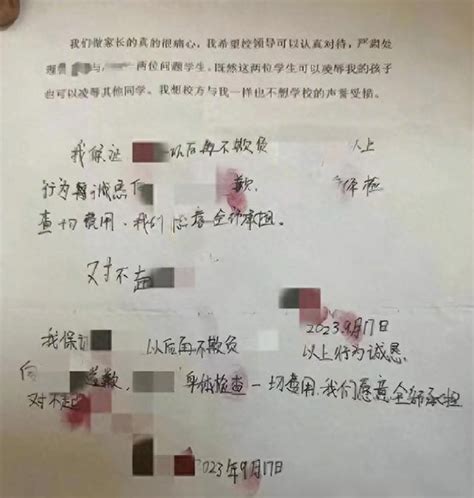 我们做家长的真的很痛心，我希望校领导可以认真对待，严肃处
理 与 两位问题学生。既然这两位学生可以凌辱我的孩子
也可以凌辱其他同学。我想校方与我一样也不想学校的声誉受损。
我保证 以后再不欺负 以上
行为 诚恳 歉. 体检
查一切费用.我们愿意全部承担.
对不起
2023.9月17日
我保 以后再不欺负 以上行为诚恳
向 道歉. 身体检查一切费用.我们愿意全部承担
对不起
2023年9月17日